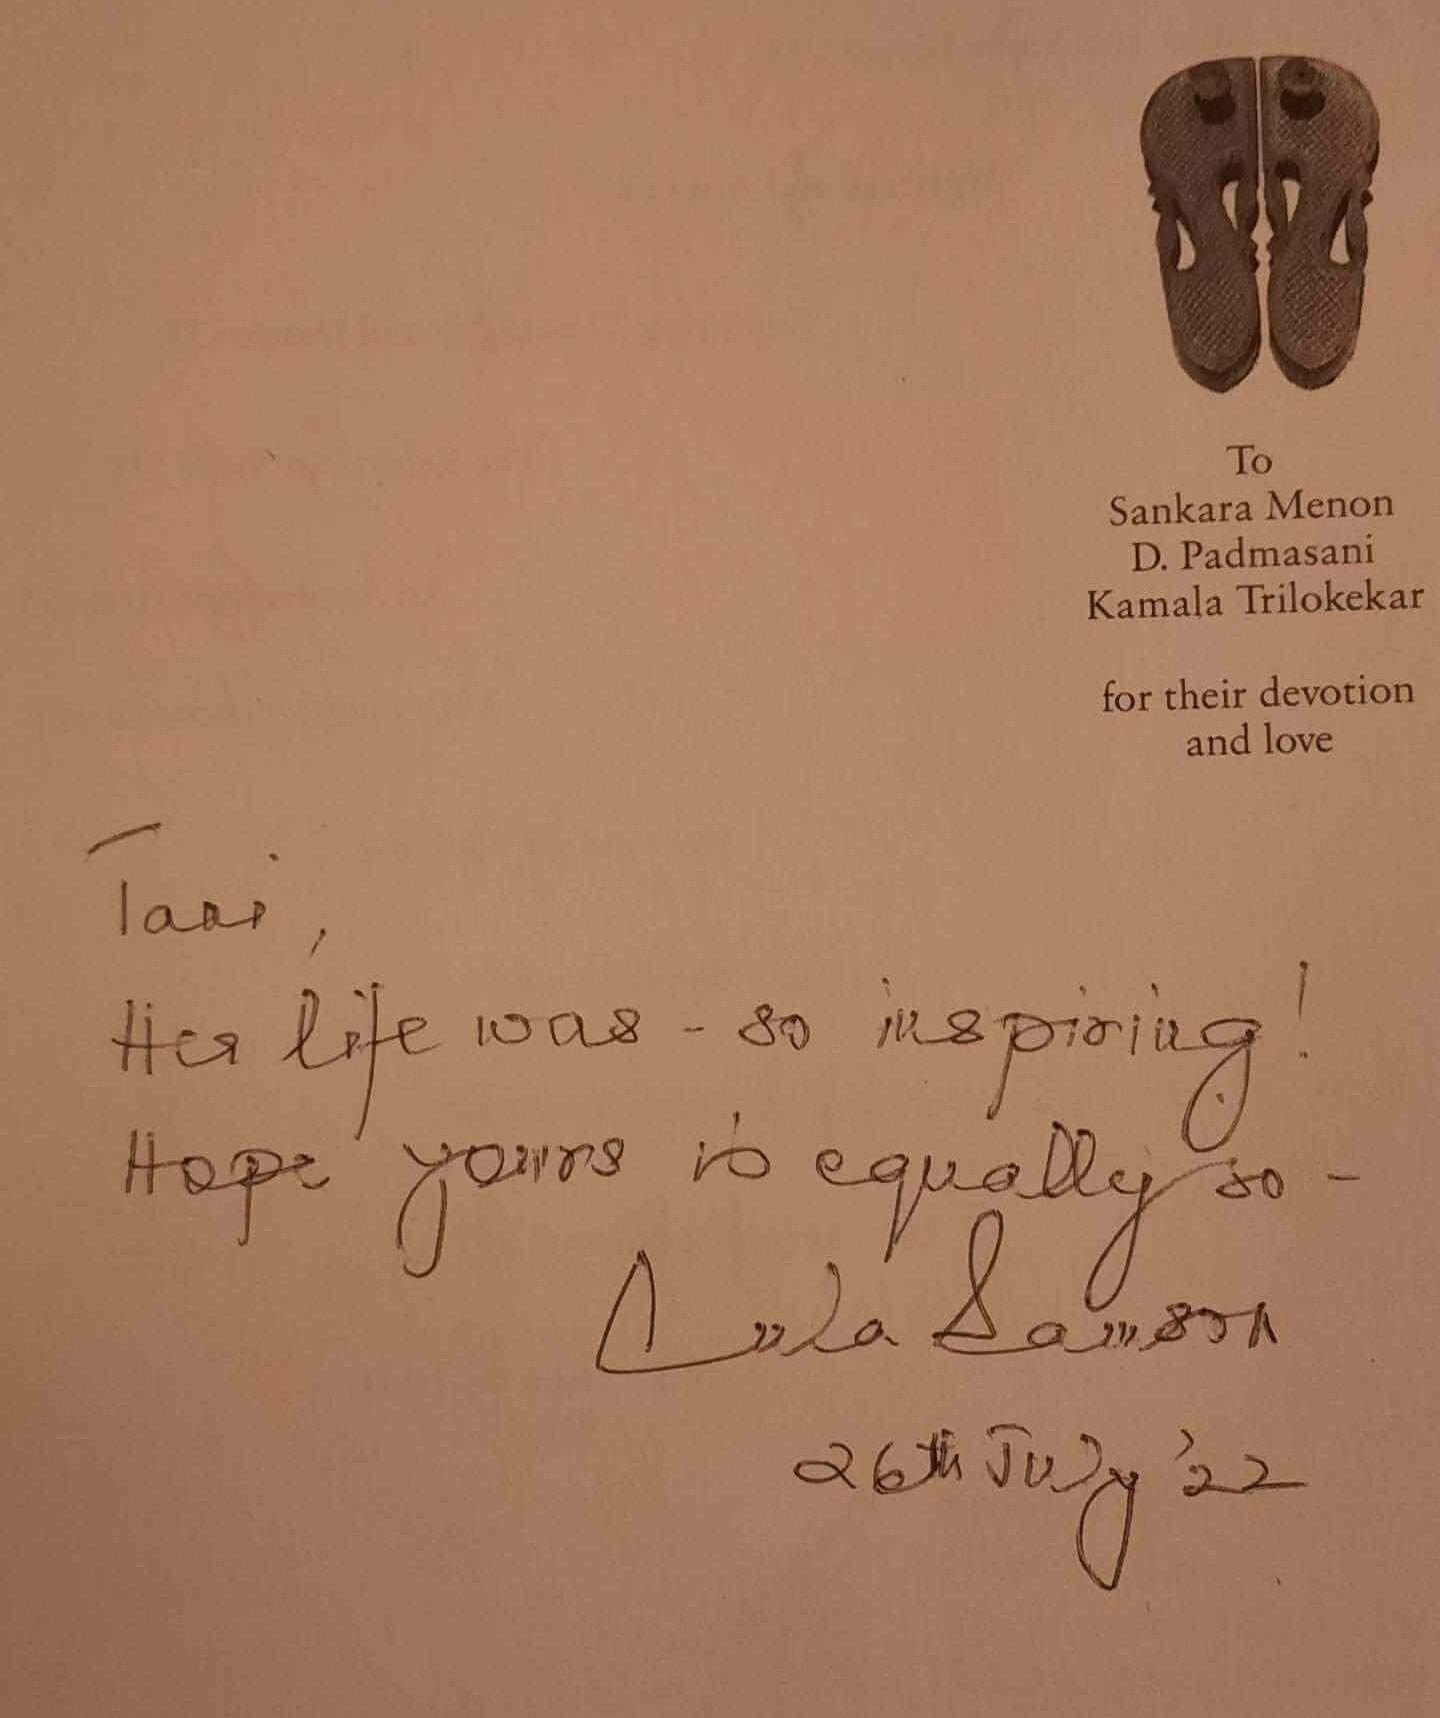 To
Sankara Menon
D. Padmasani
Kamala Trilokekar
for their devotion
and love
Tari,
Her life was - so inspiring!
Hope yours is equally so -
Leela Samson
26th July '22